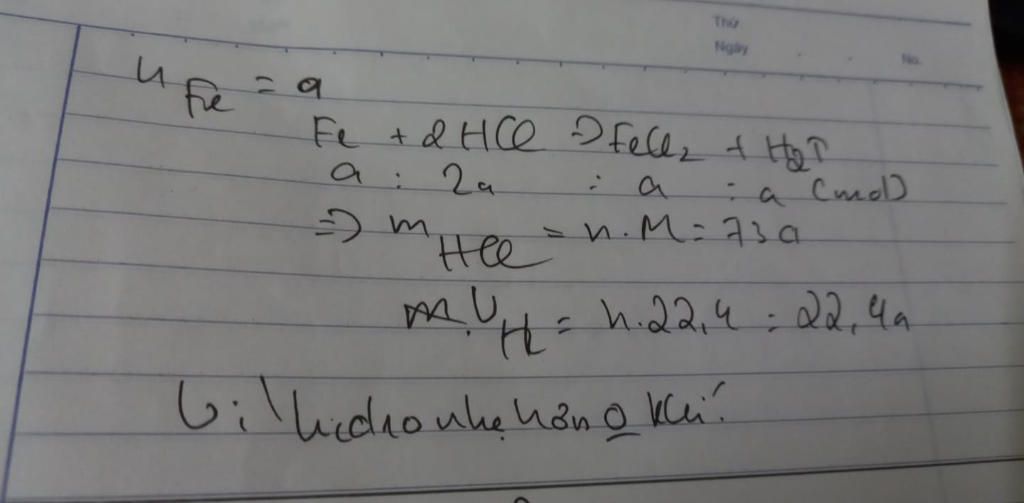 Thứ
Ngày
No.
n Fe = a
Fe + 2HCl => FeCl₂ + H₂↑
a : 2a : a : a (mol)
=> m HCl = n.M = 73a
V H₂ = n.22,4 = 22,4a
Vì hidro nhẹ hơn o khí